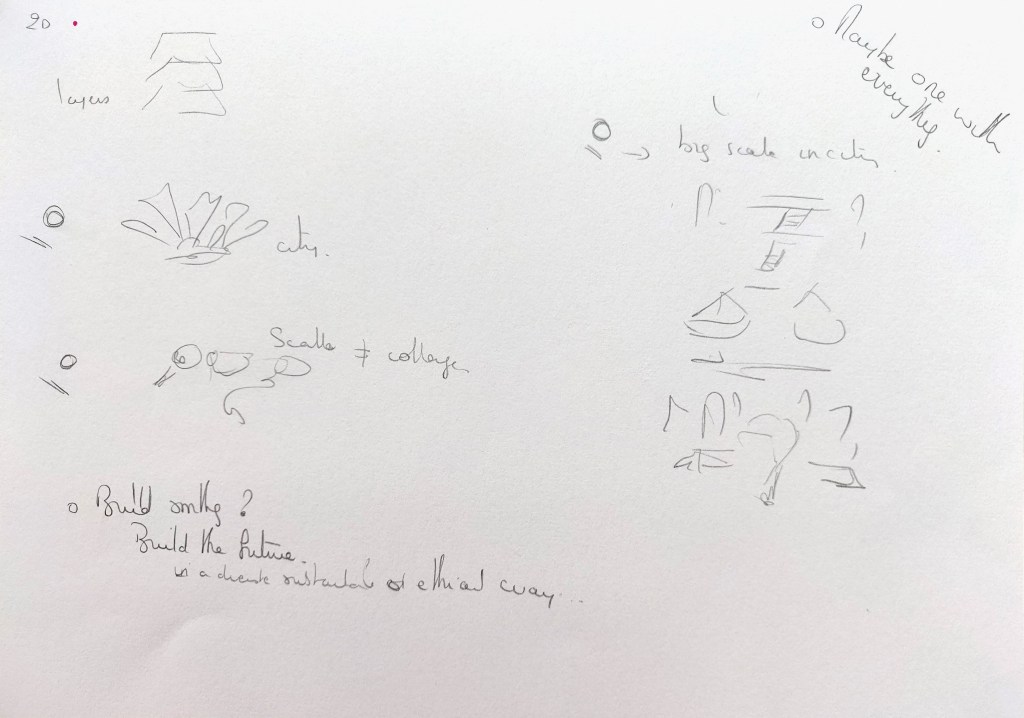 20
layers
city.
Scale ≠ collage
Build smthg ?
Build the future.
in a sustainable & ethical way...
Maybe one with
everything.
→ big scale in city